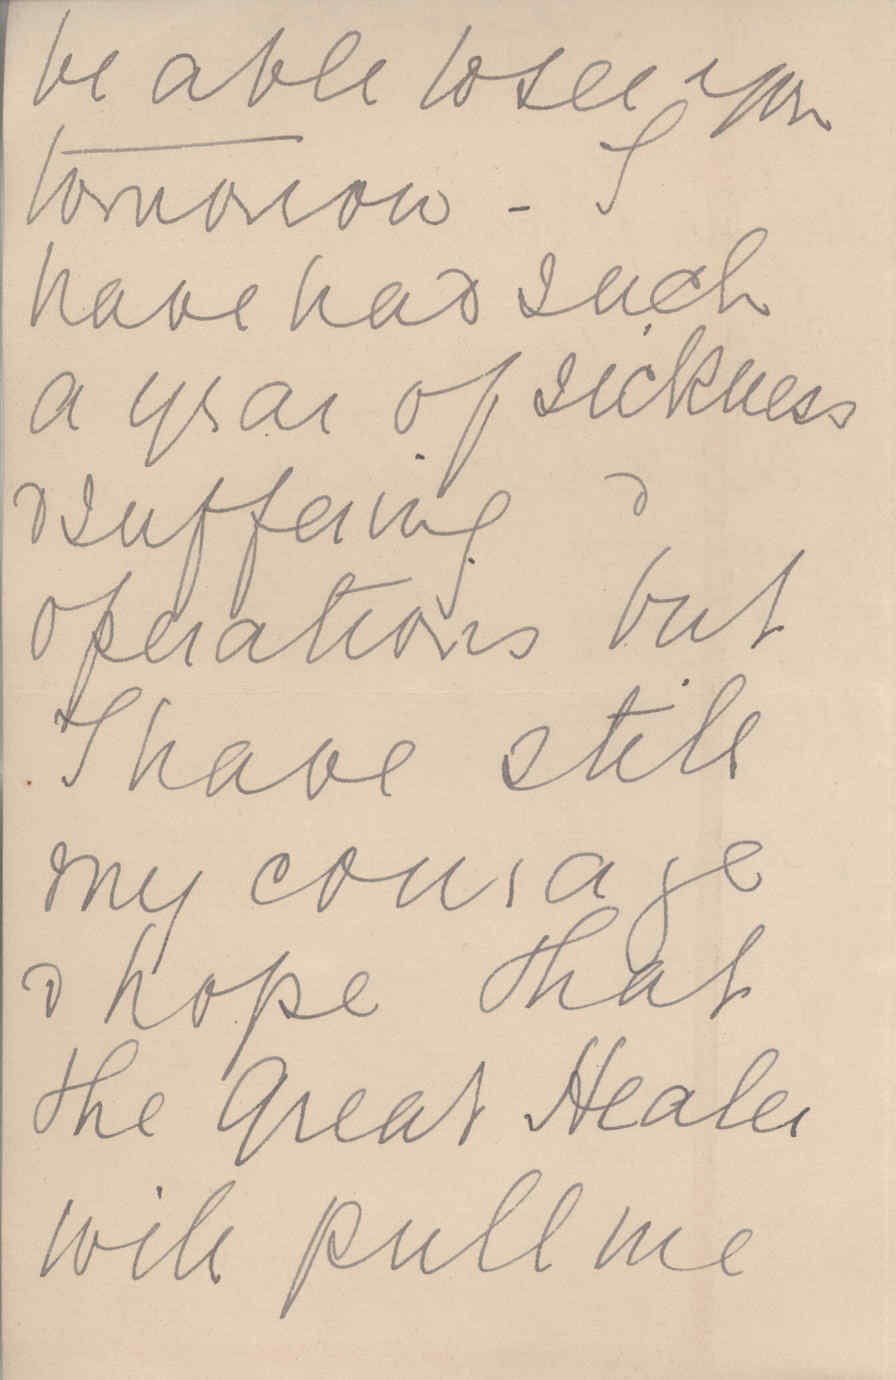 be able to see you
tomorrow - I
have had such
a year of sickness
& suffering &
operations but
I have still
my courage
& hope that
the Great Healer
will pull me